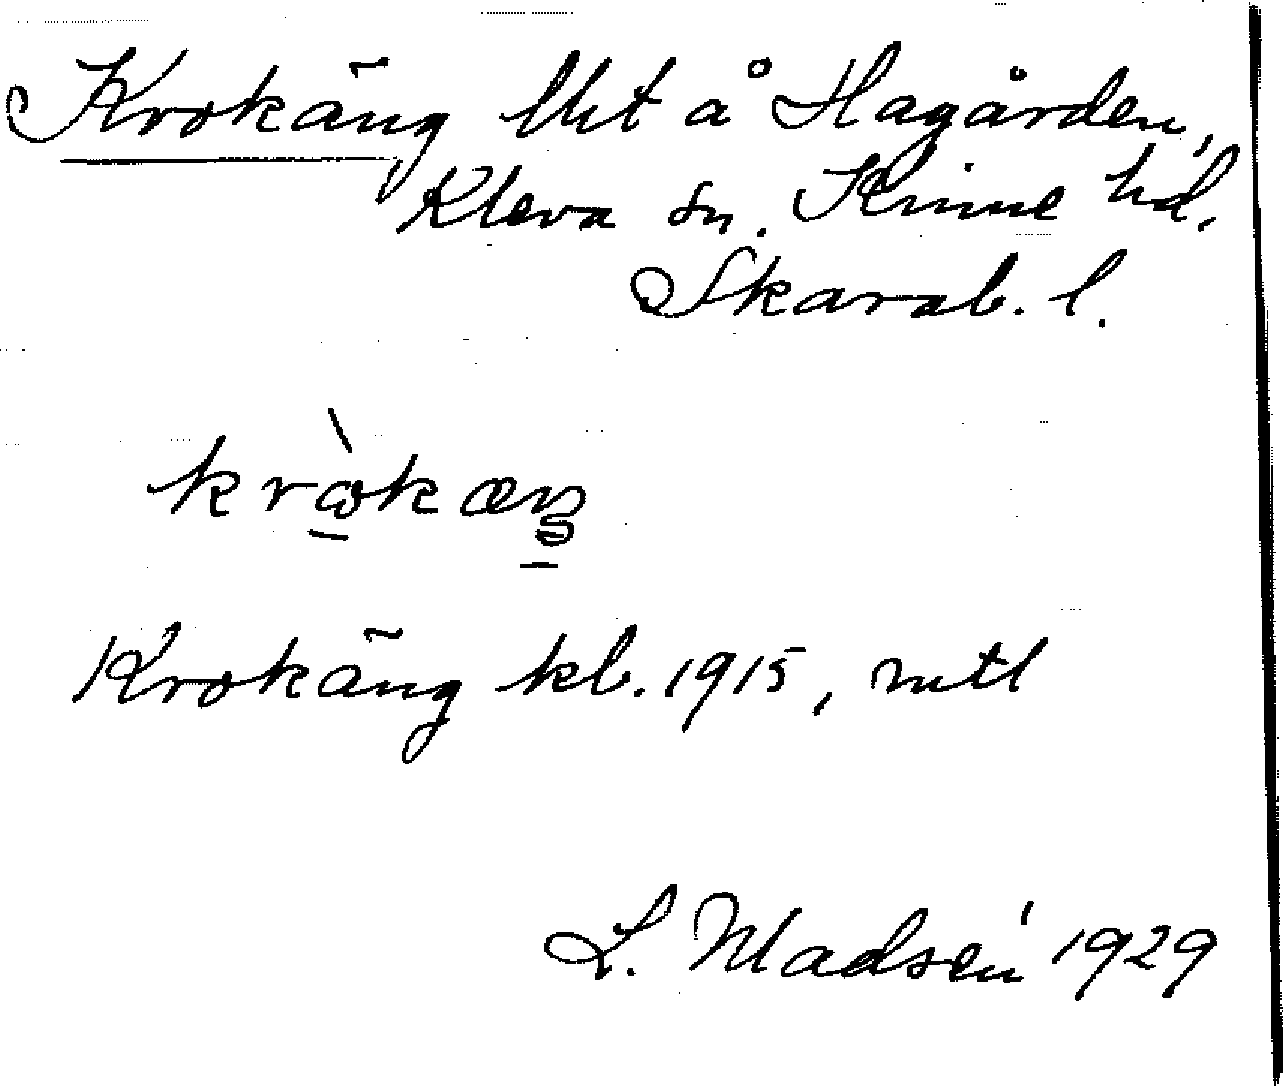 Krokäng lht å Hagården,
Kleva sn. Kinne hd.
Skarab. l.
Krokäng kb. 1915, mtl
L. Madsén 1929